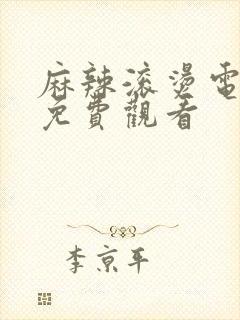 麻辣滾燙電
免費觀看
李京平